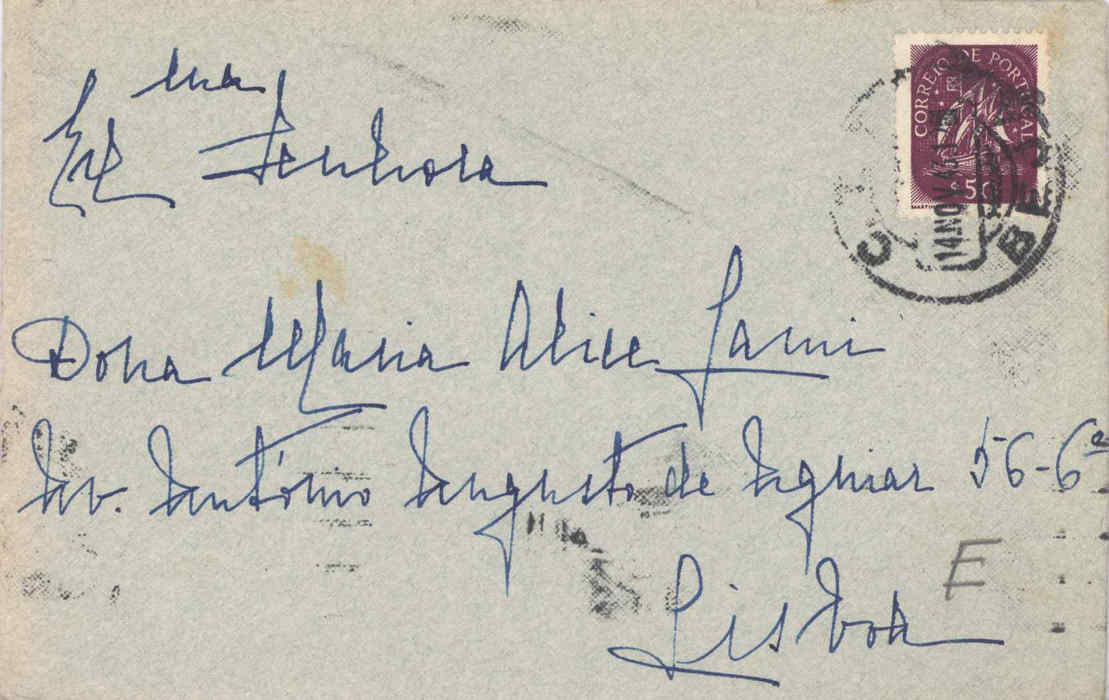 Exma Senhora
Dona Maria Alice Lami
Av. António Augusto de Aguiar 56-6º
Lisboa
E
CORREIO DE PORTUGAL
$50
14.NOV.4